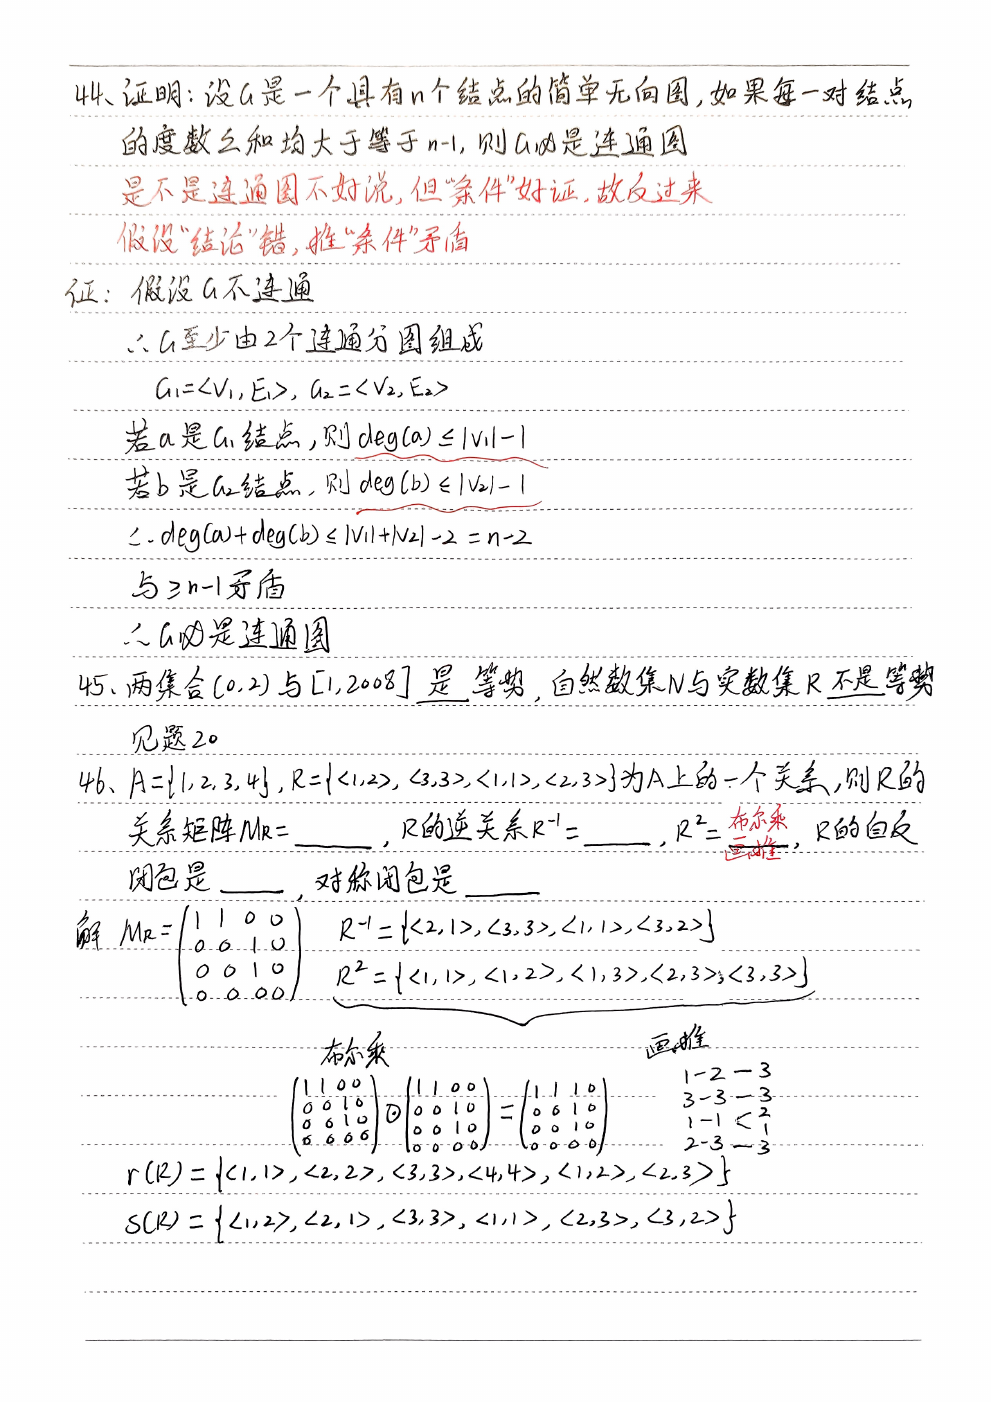 44、证明：设G是一个具有n个结点的简单无向图，如果每一对结点
的度数之和均大于等于n-1，则G是连通图
是不是连通图不好说，但"条件"好证，故反过来
假设"结论"错，推"条件"矛盾
证：假设G不连通
∴G至少由2个连通分图组成
G₁=<V₁,E₁>, G₂=<V₂,E₂>
若a是G₁结点，则deg(a)≤|V₁|-1
若b是G₂结点，则deg(b)≤|V₂|-1
∴deg(a)+deg(b)≤|V₁|+|V₂|-2=n-2
与≥n-1矛盾
∴G是连通图
45、两集合(0,2)与[1,2008]是等势，自然数集N与实数集R不是等势
见题20
46、A={1,2,3,4}, R={<1,2>,<3,3>,<1,1>,<2,3>}为A上的一个关系,则R的
关系矩阵MR=____，R的逆关系R⁻¹=____，R²=____，R的自反
布尔乘
画堆
闭包是____，对称闭包是____
解 MR=(1 1 0 0
0 0 1 0
0 0 1 0
0 0 0 0)
R⁻¹={<2,1>,<3,3>,<1,1>,<3,2>}
R²={<1,1>,<1,2>,<1,3>,<2,3>,<3,3>}
布尔乘
(1 1 0 0 ⊙ (1 1 0 0 = (1 1 1 0
0 0 1 0 0 0 1 0 0 0 1 0
0 0 1 0 0 0 1 0 0 0 1 0
0 0 0 0) 0 0 0 0) 0 0 0 0)
画堆
1-2-3
3-3-3
1-1<2
1
2-3-3
r(R)={<1,1>,<2,2>,<3,3>,<4,4>,<1,2>,<2,3>}
S(R)={<1,2>,<2,1>,<3,3>,<1,1>,<2,3>,<3,2>}